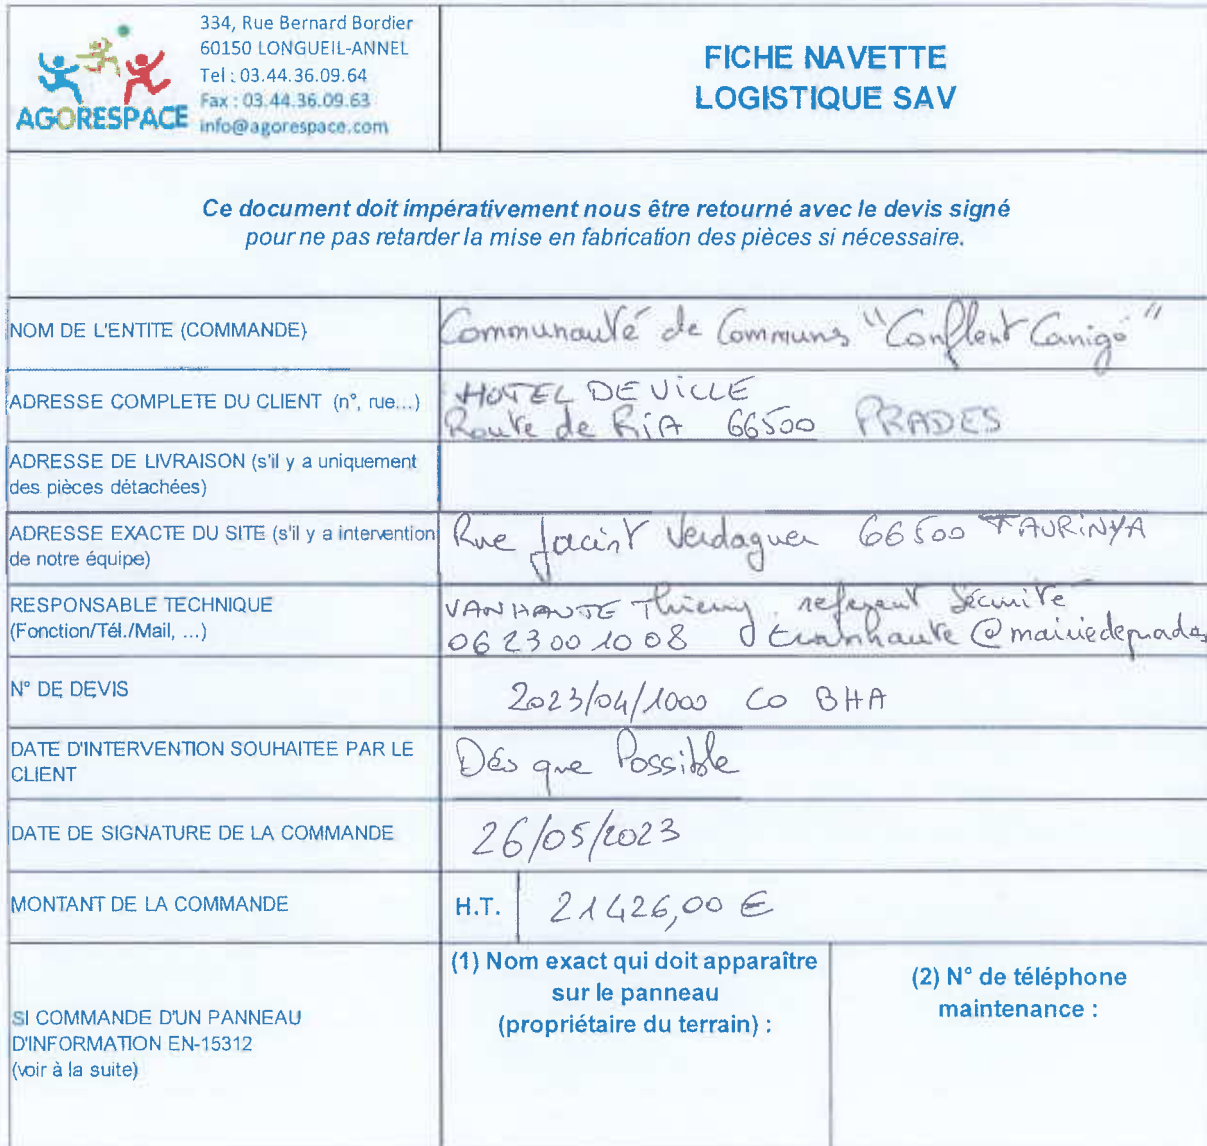 334, Rue Bernard Bordier
60150 LONGUEIL-ANNEL
Tel : 03.44.36.09.64
Fax : 03.44.36.09.63
info@agorespace.com
AGORESPACE
FICHE NAVETTE
LOGISTIQUE SAV
Ce document doit impérativement nous être retourné avec le devis signé
pour ne pas retarder la mise en fabrication des pièces si nécessaire.
NOM DE L'ENTITE (COMMANDE)
Communauté de Communs "Conflent Canigó"
ADRESSE COMPLETE DU CLIENT (n°, rue...)
HOTEL DE VILLE
Route de RiA 66500 PRADES
ADRESSE DE LIVRAISON (s'il y a uniquement
des pièces détachées)
ADRESSE EXACTE DU SITE (s'il y a intervention
de notre équipe)
Rue Jacint Verdaguer 66500 TAURINYA
RESPONSABLE TECHNIQUE
(Fonction/Tél./Mail, ...)
VANHAUTE Thierry référent Sécurité
06 23 00 10 08 tvanhaute@mairiedeprades
N° DE DEVIS
2023/04/1000 CO BHA
DATE D'INTERVENTION SOUHAITEE PAR LE
CLIENT
Dés que Possible
DATE DE SIGNATURE DE LA COMMANDE
26/05/2023
MONTANT DE LA COMMANDE
H.T. 21426,00 €
SI COMMANDE D'UN PANNEAU
D'INFORMATION EN-15312
(voir à la suite)
(1) Nom exact qui doit apparaître
sur le panneau
(propriétaire du terrain) :
(2) N° de téléphone
maintenance :